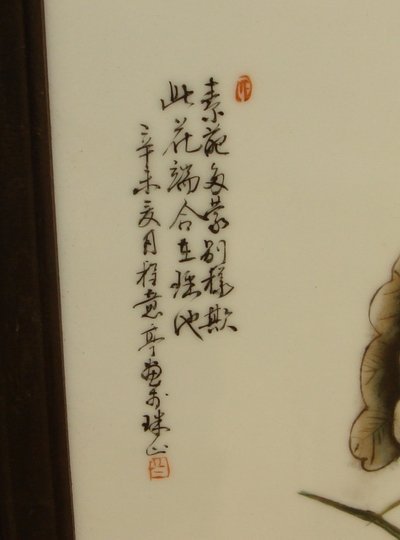 素苑多蒙别種欺
此花端合在瑶池
辛未夏月程意亭画於珠山